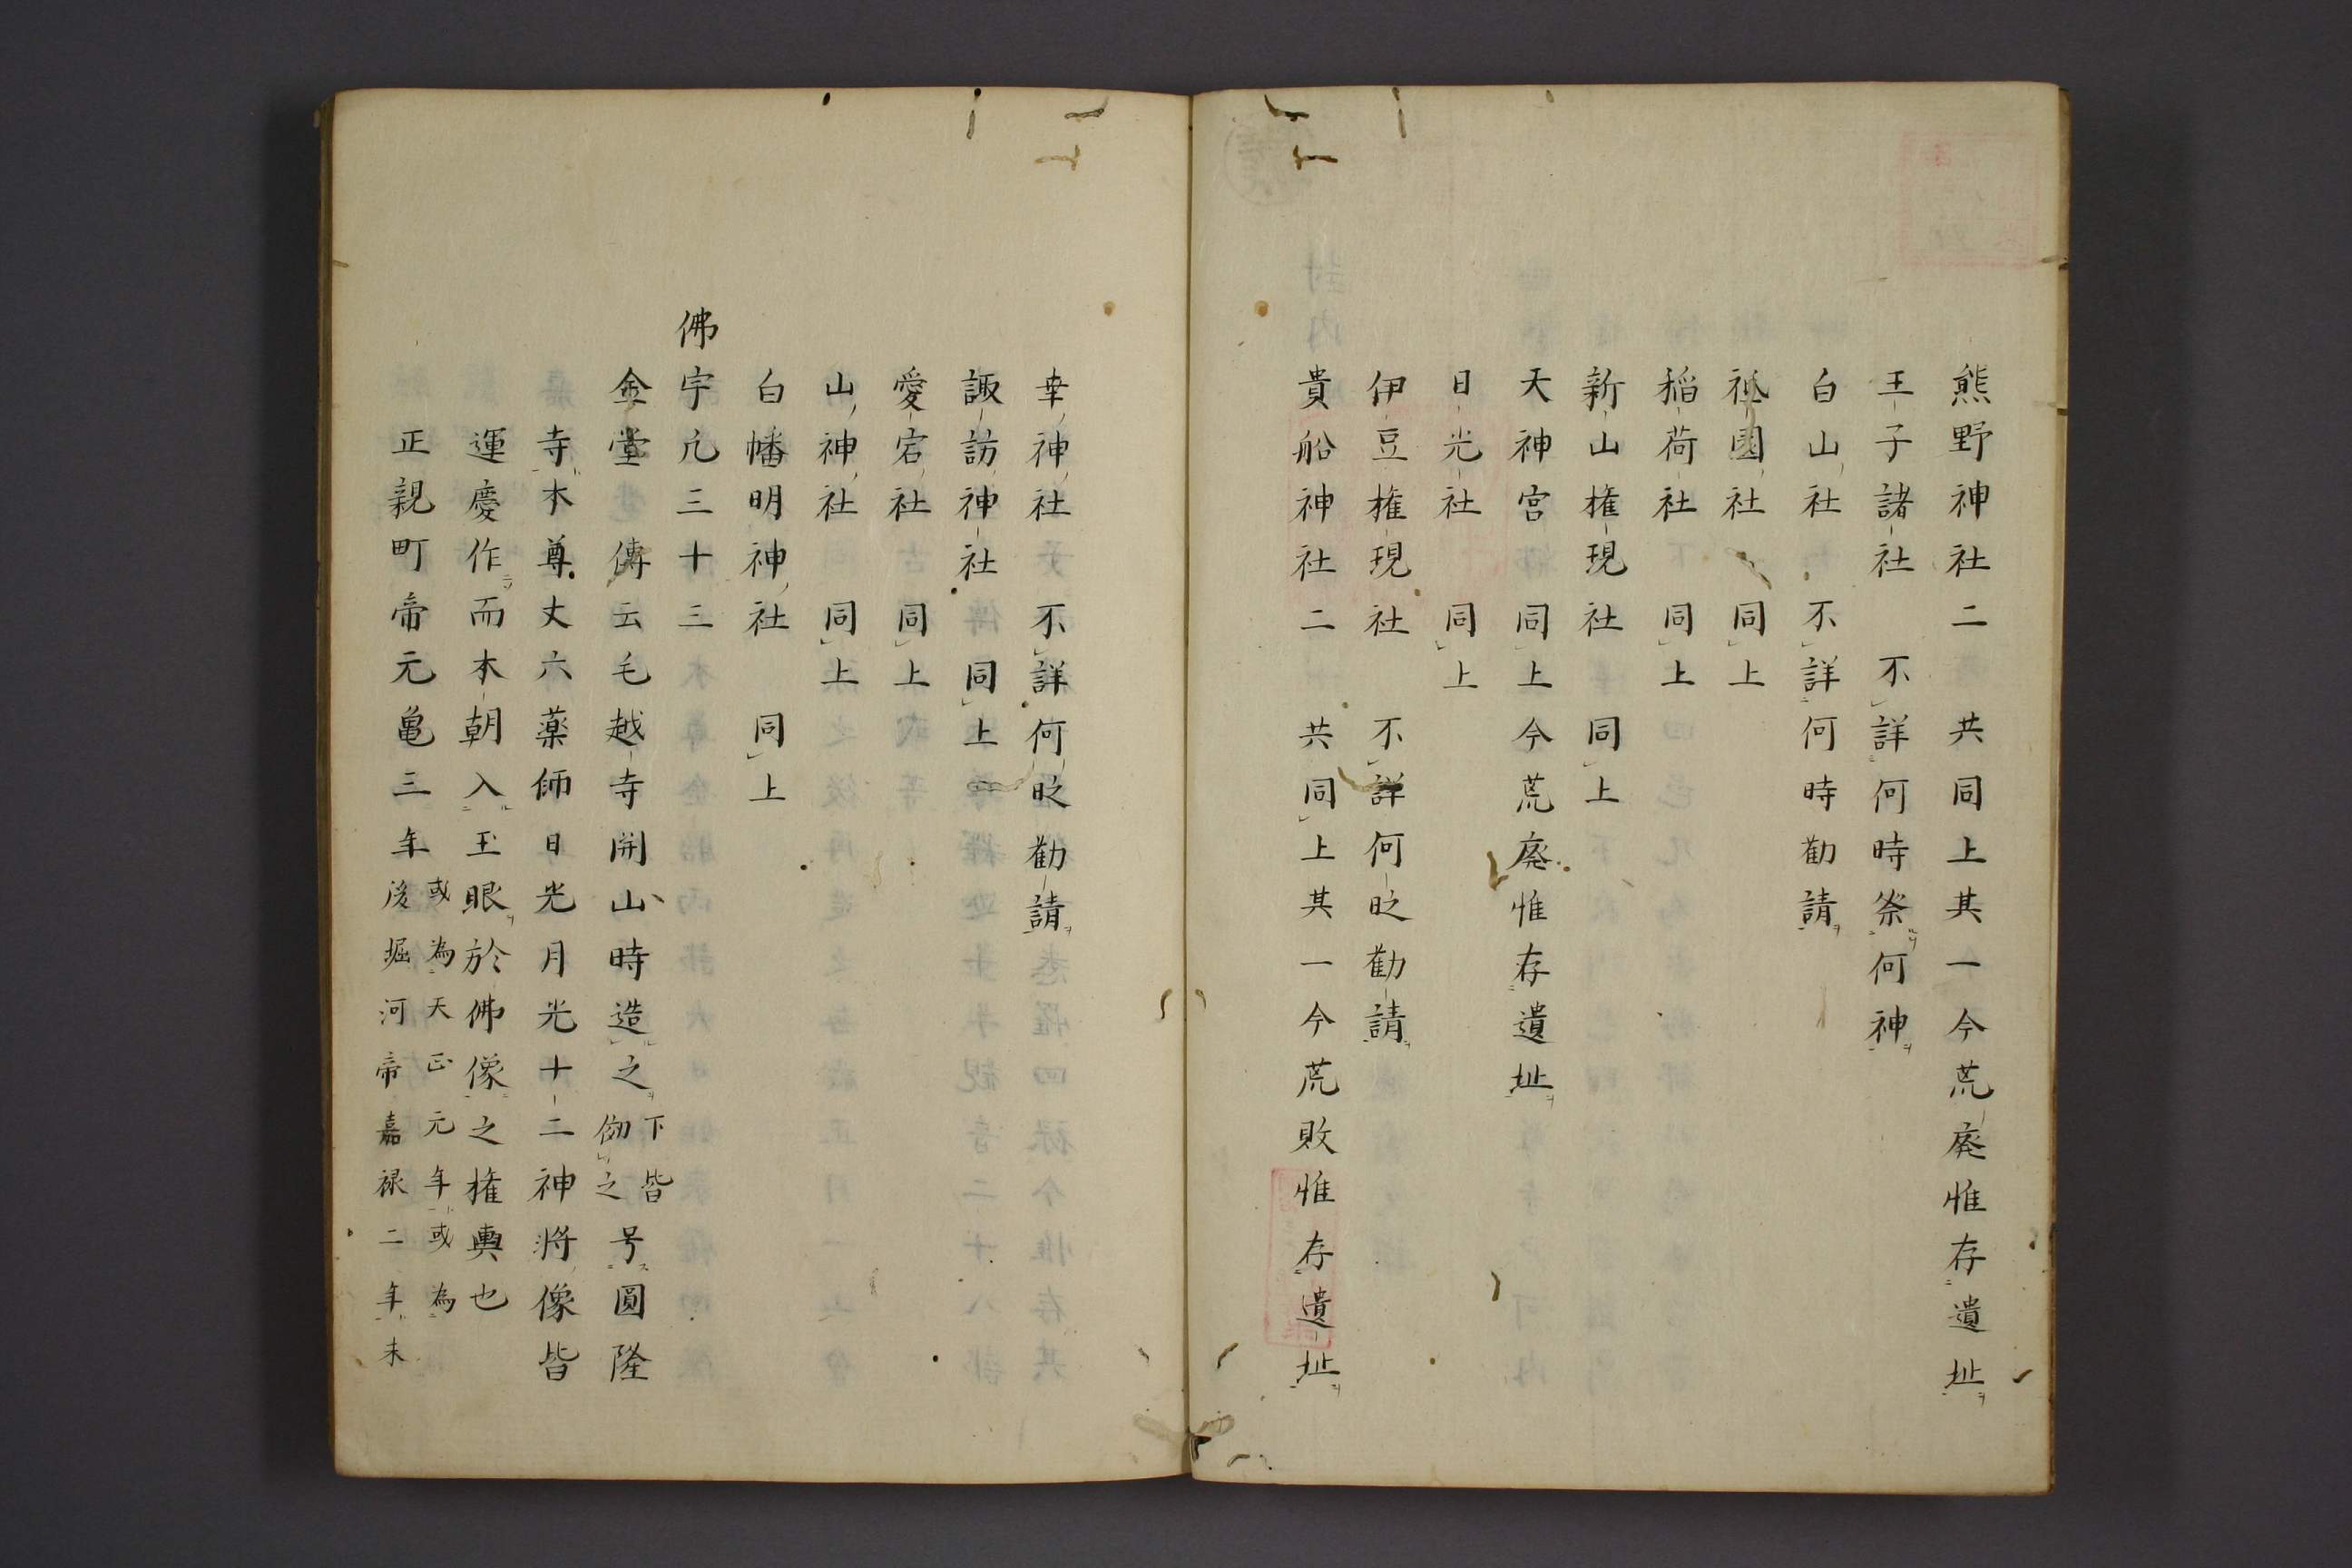 熊野神社二　共同上其一今荒廃惟存遺址
王子諸社　不詳何時祭何神
白山社　不詳何時勧請
祗園社　同上
稲荷社　同上
新山権現社　同上
天神宮　同上今荒廃惟存遺址
日光社　同上
伊豆権現社　不詳何时勧請
貴船神社二　共同上其一今荒敗惟存遺址
幸神社　不詳何时勧請
諏訪神社　同上
愛宕社　同上
山神社　同上
白幡明神社　同上
佛宇凢三十三
金堂傳云毛越寺開山時造之
下皆
傚之
号圓隆
寺木尊丈六薬師日光月光十二神将像皆
運慶作而本朝入玉眼於佛像之権輿也
正親町帝元亀三年
或為天正元年或為
後堀河帝嘉禄二年未